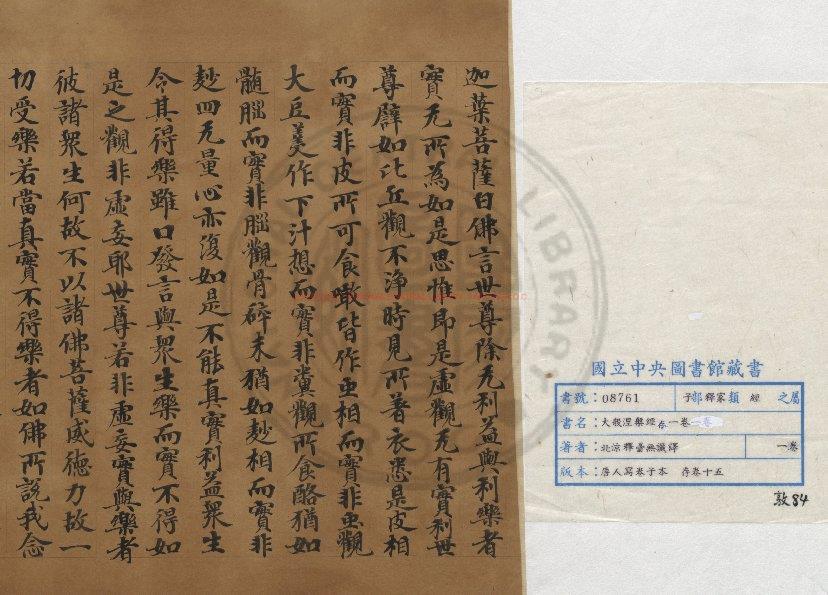 迦葉菩薩白佛言世尊除无利益與利樂者
實无所為如是思惟即是虛觀无有實利世
尊譬如比丘觀不淨時見所著衣悉是皮相
而實非皮所可食噉皆作虫相而實非虫觀
大豆羹作下汁想而實非糞觀所食酪猶如
髓腦而實非腦觀骨碎末猶如麨相而實非
麨四无量心亦復如是不能真實利益眾生
令其得樂雖口發言與眾生樂而實不得如
是之觀非虛妄耶世尊若非虛妄實與樂者
彼諸眾生何故不以諸佛菩薩威德力故一
切受樂若當真實不得樂者如佛所說我念
國立中央圖書館藏書
書號：08761 子部釋家類 經 之屬
書名：大般涅槃經存一卷
著者：北涼釋曇無讖譯 一卷
版本：唐人寫卷子本 存卷十五
敦84